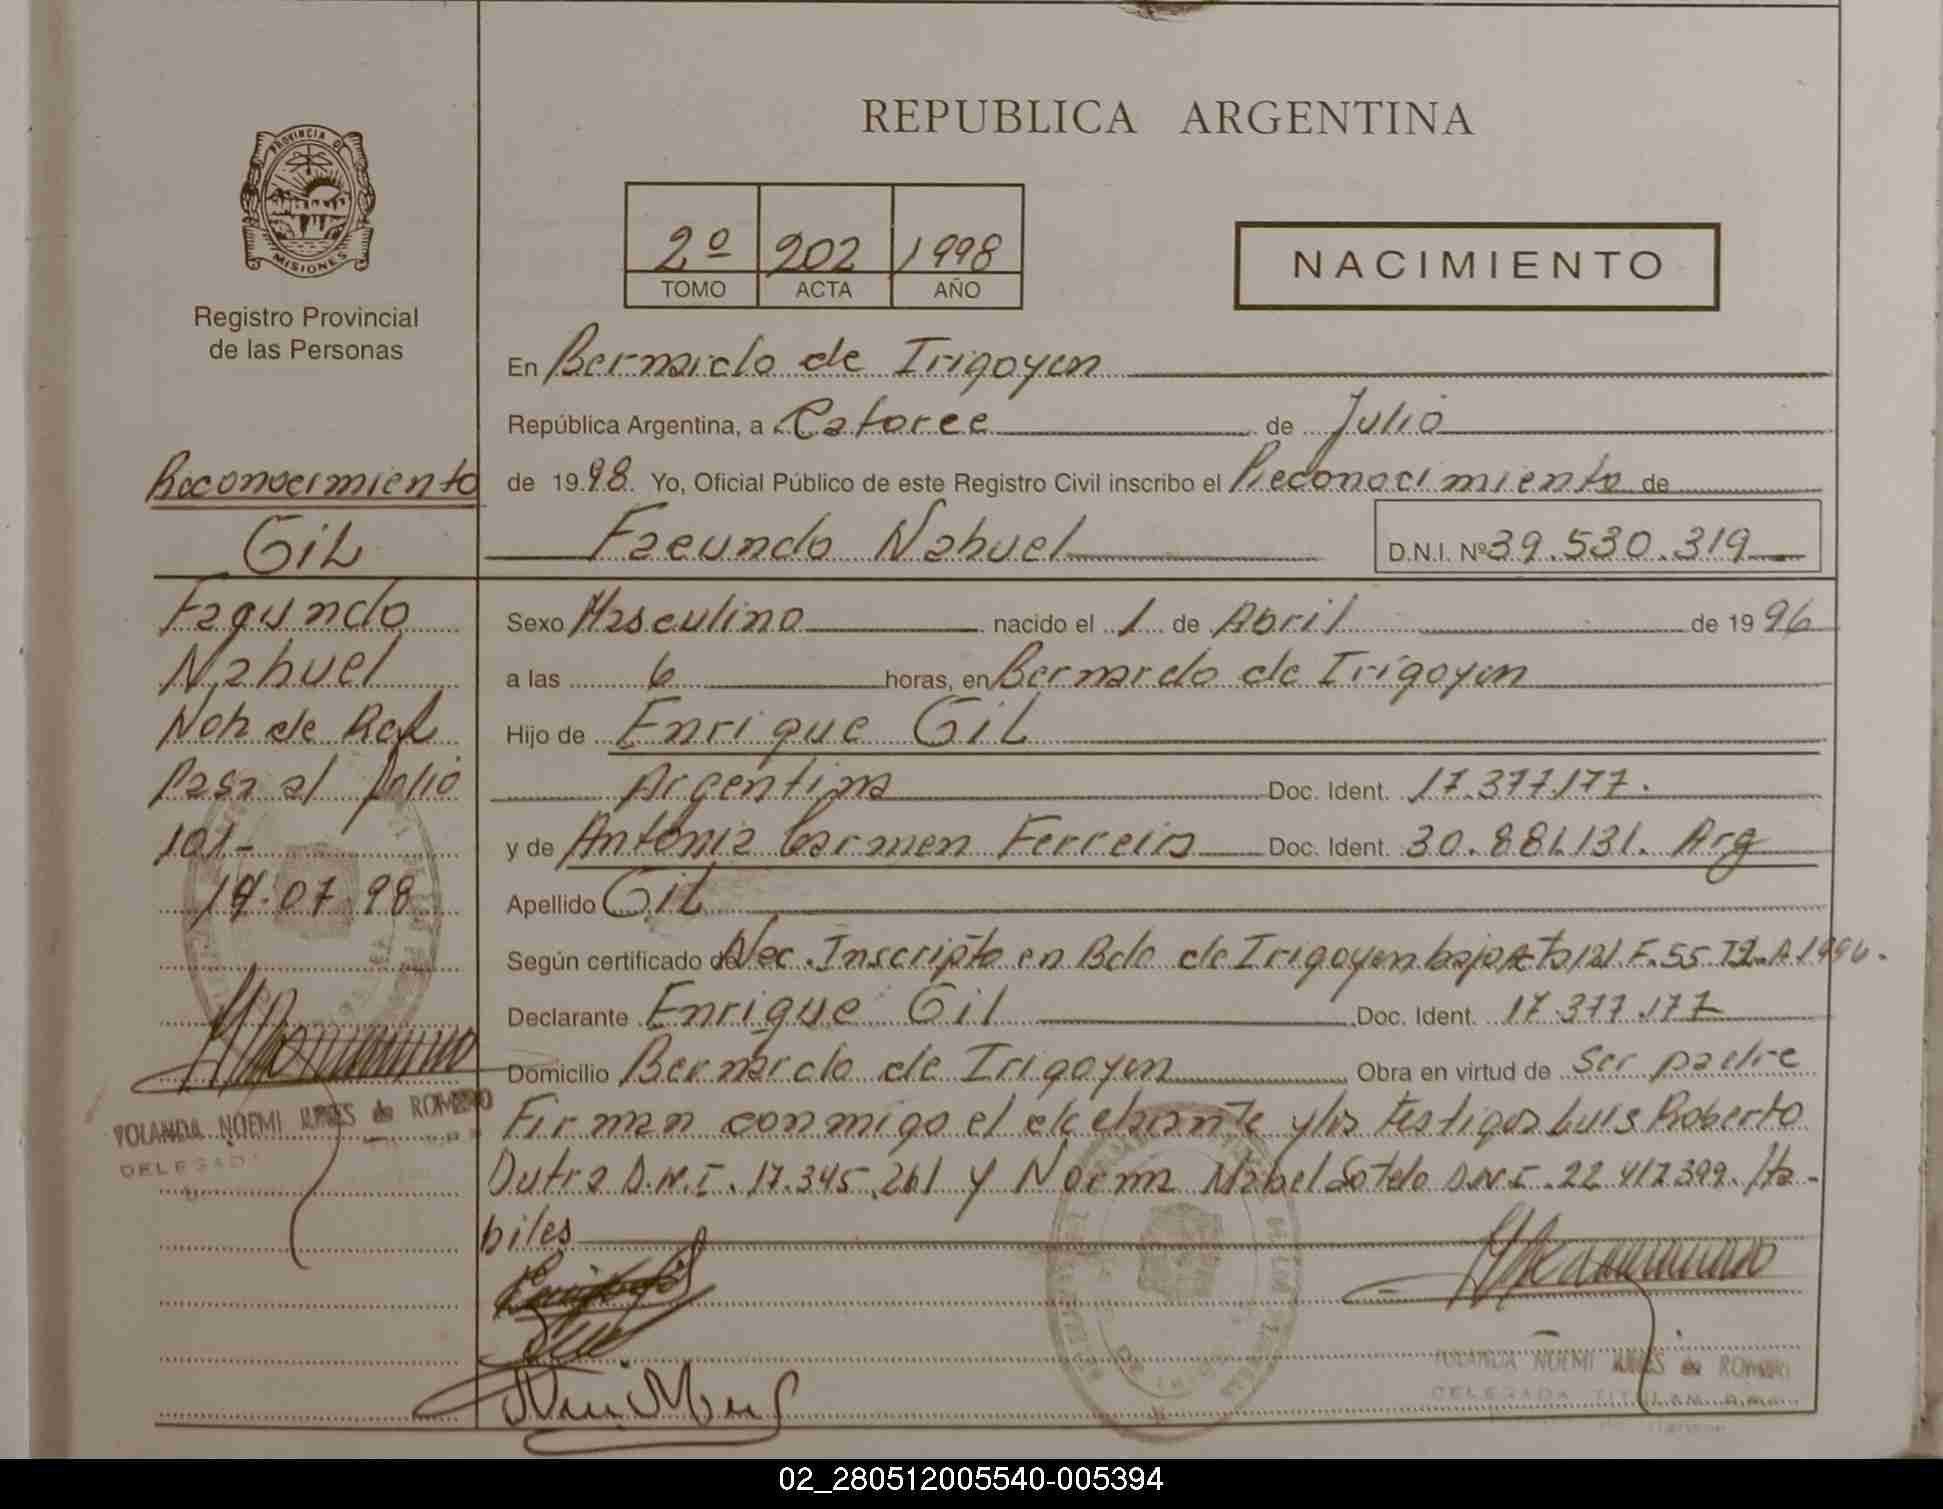 REPUBLICA ARGENTINA
PROVINCIA DE MISIONES
Registro Provincial
de las Personas
2º 202 1998
TOMO ACTA AÑO
NACIMIENTO
En Bernardo de Irigoyen
República Argentina, a Catorce de Julio
de 1998. Yo, Oficial Público de este Registro Civil inscribo el Reconocimiento de
Facundo Nahuel D.N.I. Nº 39.530.319
Sexo Masculino nacido el 1 de Abril de 1996
a las 6 horas, en Bernardo de Irigoyen
Hijo de Enrique Gil
Argentina Doc. Ident. 17.377.177.
y de Antonia Carmen Ferreira Doc. Ident. 30.881.131. Arg
Apellido Gil
Según certificado de Nac. Inscripto en Bdo de Irigoyen bajo Acta 121 F. 55 T2. A 1996.
Declarante Enrique Gil Doc. Ident. 17.377.177
Domicilio Bernardo de Irigoyen Obra en virtud de Ser padre
Firman conmigo el declarante y los testigos Luis Roberto
Dutra D.N.I. 17.345.261 y Norma Mabel Sotelo D.N.I. 22.417.399. Ha-
biles
YOLANDA NOEMI de ROMERO
DELEGADA TITULAR
Reconocimiento
Gil
Facundo
Nahuel
Pasa al folio
101-
14.07.98
YOLANDA NOEMI de ROMERO
DELEGADA
02_280512005540-005394